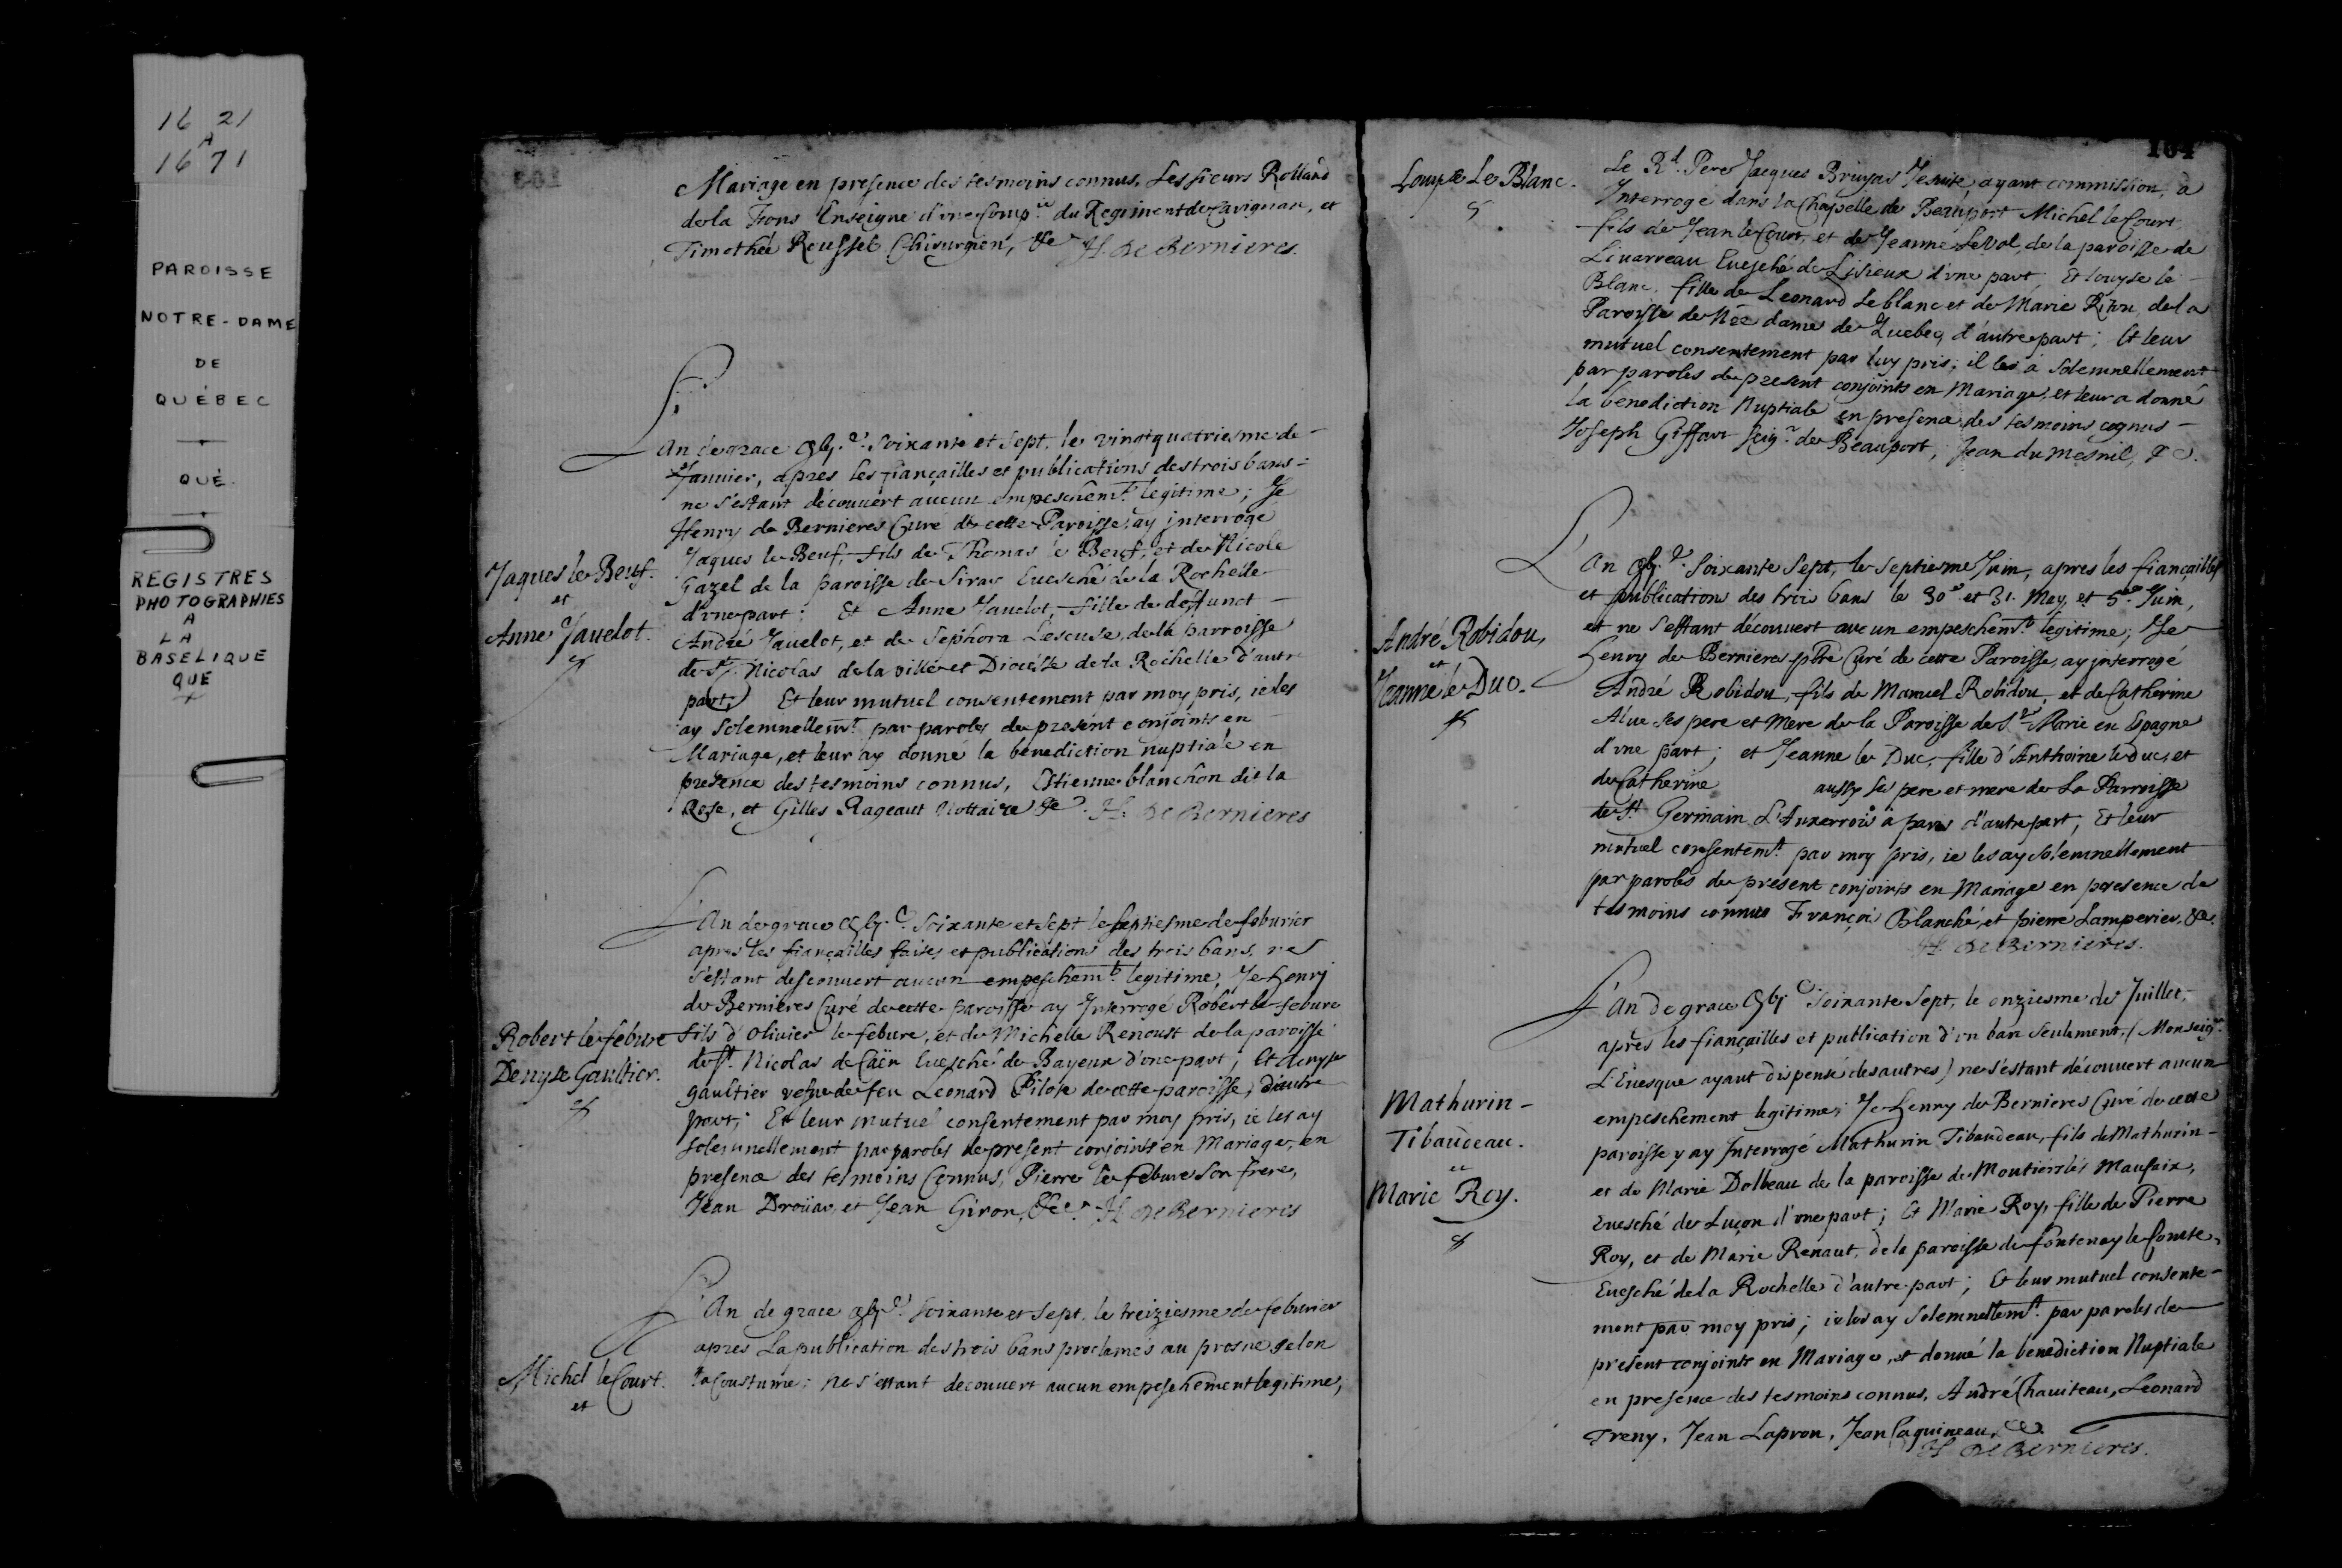 16 21
A
16 71
PAROISSE
NOTRE-DAME
DE
QUÉBEC
QUÉ.
REGISTRES
PHOTOGRAPHIES
A
LA
BASELIQUE
QUE
Mariage en presence des tesmoins connus, Les sieurs Rolland
de la Fons Enseigne d'une Comp.ie du Regiment de Carignan, et
Timothée Roussel Chirurgien, &c H. de Bernieres.
L'
An de grace soixante et sept, le vingt quatriesme de
Janvier, apres les fiançailles et publications des trois bans
ne s'estant découvert aucun empeschem.t legitime; Je
Henry de Bernieres Curé de cette Paroisse, ay interrogé
Jaques le Beuf, fils de Thomas le Beuf, et de Nicole
Gazel de la paroisse de Siray Evesché de la Rochelle
d'une part; Et Anne Javelot, fille de deffunct
André Javelot, et de Sephora Lescuse, de la parroisse
de St. Nicolas de la ville et Diocése de la Rochelle d'autre
part; Et leur mutuel consentement par moy pris, ie les
ay solemnellem.t par paroles de present conjoints en
Mariage, et leur ay donné la benediction nuptiale en
presence des tesmoins connus, Estienne blanchon dit la
Rose, et Gilles Rageaut Nottaire &c. H. de Bernieres
Jaques le Beuf.
et
Anne Javelot.
L'An de grace soixante et sept le septiesme de feburier
apres les fiançailles faites, et publications des trois bans, ne
s'estant descouvert aucun empeschem.t legitime, Je henry
de Bernieres Curé de cette paroisse ay Interrogé Robert le febure
fils d'Olivier le febure, et de Michelle Renoust de la paroisse
de St. Nicolas de Caën Evesché de Bayeux d'une part; Et denyse
gaultier vefue de feu Leonard Pilote de cette paroisse, d'autre
part; Et leur mutuel consentement par moy pris, ie les ay
solemnellement par paroles de present conjoints en Mariage, en
presence des tesmoins Connus, Pierre le febure son frere,
Jean Droüar, et Jean Giron, &c. H. de Bernieres
Robert le febure
Denyse Gaultier.
L'An de grace soixante et sept, le treiziesme de feburier
apres La publication des trois bans proclamés au prosne selon
la Coustume; ne s'estant decouvert aucun empeschement legitime,
Michel le Court.
et
104
Louyse Le Blanc.
Le R.d Pere Jacques Bruyas Jesuite ayant commission, à
Interrogé dans la Chapelle de Beauport Michel le Court
fils de Jean le Court, et de Jeanne LeVol, de la paroisse de
Livarreau Evesché de Lisieux d'une part; Et louyse le
Blanc, fille de Leonard Le blanc et de Marie Riton, de la
Paroisse de Nre dame de Quebec, d'autre part; Et leur
mutuel consentement par luy pris; il les à solemnellement
par paroles de present conjoints en Mariage, et leur a donné
la benediction Nuptiale en presence des tesmoins cognus
Joseph Giffart seig.r de Beauport, Jean du Mesnil, &c.
L'An soixante sept, le septiesme Juin, apres les fiançailles
et publication des trois bans le 30e et 31. May, et 5e Juin,
et ne s'estant découvert aucun empeschem.t legitime; Je
henry de Bernieres ptre Curé de cette Paroisse, ay interrogé
André Robidou, fils de Manuel Robidou, et de Catherine
Alue ses pere et mere de la Paroisse de Ste Marie en Espagne
d'une part; et Jeanne le Duc, fille d'Anthoine le duc, et
de Catherine aussy ses pere et mere de La Parroisse
de St Germain L'Auxerrois à paris d'autre part, Et leur
mutuel consentem.t par moy pris, ie les ay solemnellement
par paroles de present conjoints en Mariage en presence de
tesmoins connus François Blanché, et pierre Lamperier, &c.
H. de Bernieres.
André Robidou,
et
Jeanne le Duc.
L'An de grace soixante sept, le onziesme de Juillet,
apres les fiançailles et publication d'un ban seulement, (Monseig.r
L'Evesque ayant dispensé des autres) ne s'estant découvert aucun
empeschement legitime; Je henry de Bernieres Curé de cette
paroisse y ay Interrogé Mathurin Tibaudeau, fils de Mathurin
et de Marie Dolbeau de la paroisse de Moutiers lés Maufaix,
Evesché de Luçon d'une part; Et Marie Roy, fille de Pierre
Roy, et de Marie Renaut, de la paroisse de fontenay le Comte,
Evesché de la Rochelle d'autre part; Et leur mutuel consente-
ment par moy pris; ie les ay solemnellem.t par paroles de
present conjoints en Mariage, et donné la benediction Nuptiale
en presence des tesmoins connus, André Chauiteau, Leonard
Treny, Jean Lapron, Jean Caquineau, &c.
H. de Bernieres.
Mathurin
Tibaudeau.
et
Marie Roy.